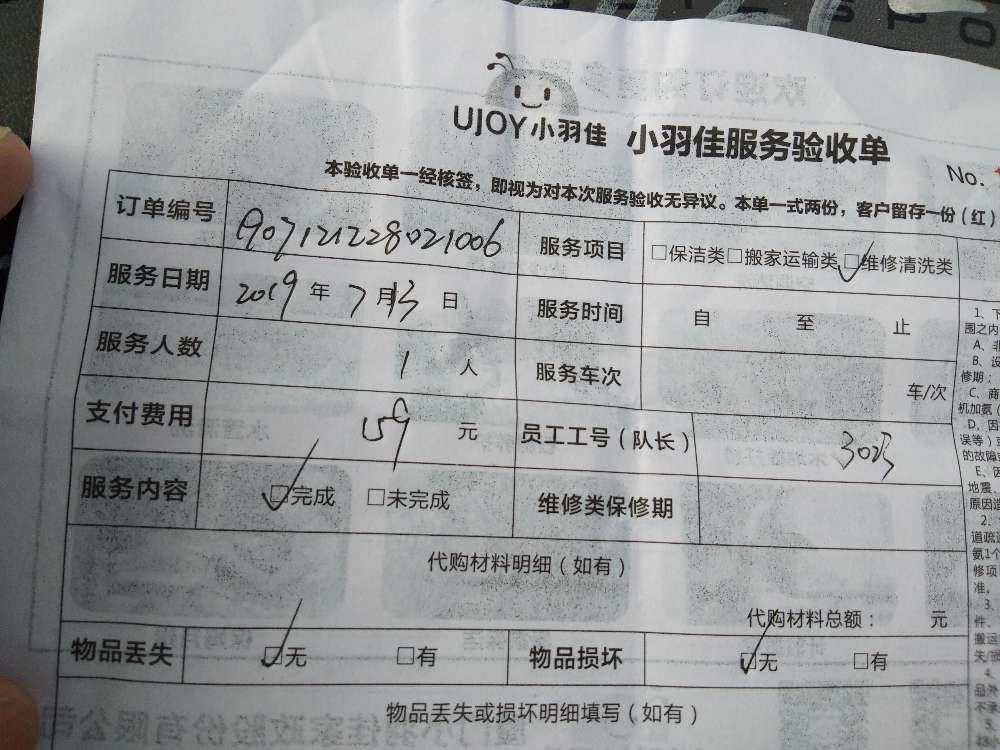 UJOY小羽佳 小羽佳服务验收单
No.
本验收单一经核签，即视为对本次服务验收无异议。本单一式两份，客户留存一份（红）
订单编号 服务项目 □保洁类□搬家运输类□维修清洗类
服务日期 2019 年 7 月 13 日 服务时间 自 至 止
服务人数 1 人 服务车次 车/次
支付费用 159 元 员工工号（队长）
服务内容 □完成 □未完成 维修类保修期
代购材料明细（如有）
代购材料总额： 元
物品丢失 □无 □有 物品损坏 □无 □有
物品丢失或损坏明细填写（如有）
1、下
围之内
A、非
B、设
修期：
C、商
机加氨
D、因
误等）
的故障
E、因
地震、
原因造
2、
道疏通
氨1个
修项
准。
3、
件、
搬运
4、
品外
不承
5、